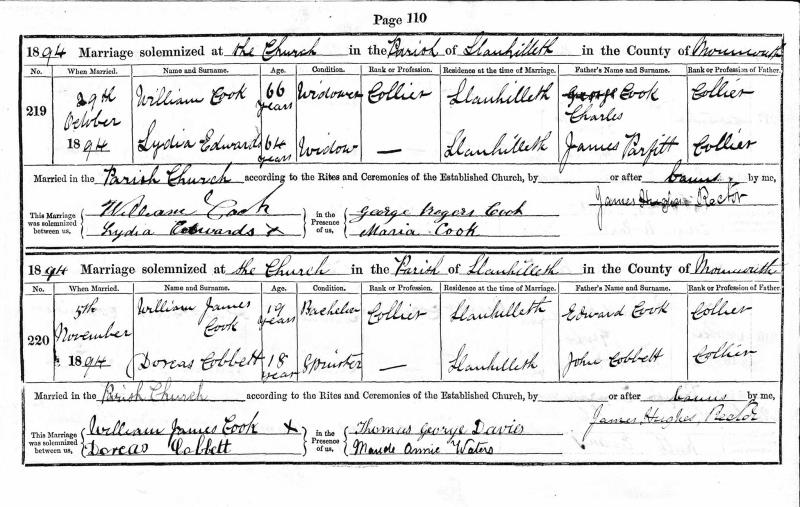 Page 110
1894 Marriage solemnized at the Church in the Parish of Llanhilleth in the County of Monmouth
No. When Married. Name and Surname. Age. Condition. Rank or Profession. Residence at the time of Marriage. Father's Name and Surname. Rank or Profession of Father.
219 29th October 1894 William Cook 66 years Widower Collier Llanhilleth George Cook Charles Collier
Lydia Edwards 64 years Widow — Llanhilleth James Parfitt Collier
Married in the Parish Church according to the Rites and Ceremonies of the Established Church, by or after banns by me,
James Hughes Rector
This Marriage was solemnized between us, William Cook in the Presence of us, George Rogers Cook
Lydia Edwards x Maria Cook
1894 Marriage solemnized at the Church in the Parish of Llanhilleth in the County of Monmouth
No. When Married. Name and Surname. Age. Condition. Rank or Profession. Residence at the time of Marriage. Father's Name and Surname. Rank or Profession of Father.
220 5th November 1894 William James Cook 19 years Bachelor Collier Llanhilleth Edward Cook Collier
Dorcas Cobbett 18 year Spinster — Llanhilleth John Cobbett Collier
Married in the Parish Church according to the Rites and Ceremonies of the Established Church, by or after banns by me,
James Hughes, Rector
This Marriage was solemnized between us, William James Cook x in the Presence of us, Thomas George Davies
Dorcas Cobbett Maude Annie Waters